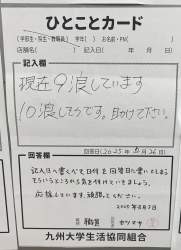 ひとことカード
(学部生・院生・教職員) 学年( ) お名前・PN( )
店舗名( ) 記入日( 年 月 日)
記入欄
現在9浪しています
10浪しそうです。助けて下さい。
回答欄
回答日(2025年8月26日)
記入日へ書くべき日付を回答日に書いてしまう
そういうところから気を付けていきましょう。
応援しています。頑張ってください。
2025年8月27日
職名
カツマタ
九州大学生活協同組合